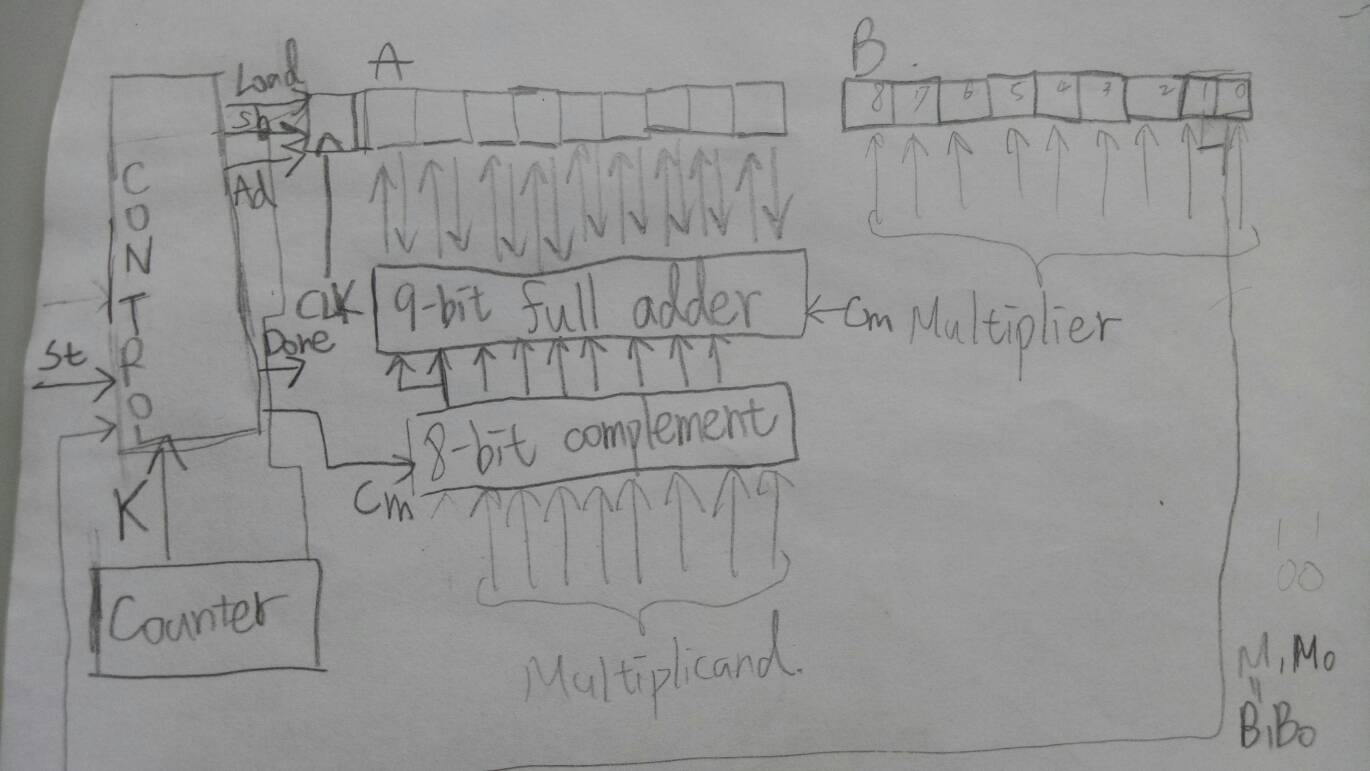 Load
A
B
8 7 6 5 4 3 2 1 0
Sh
Ad
CONTROL
CLK
9-bit full adder
Cm
Multiplier
Done
St
8-bit complement
Cm
K
Counter
Multiplicand.
1 1
00
M1M0
B1B0